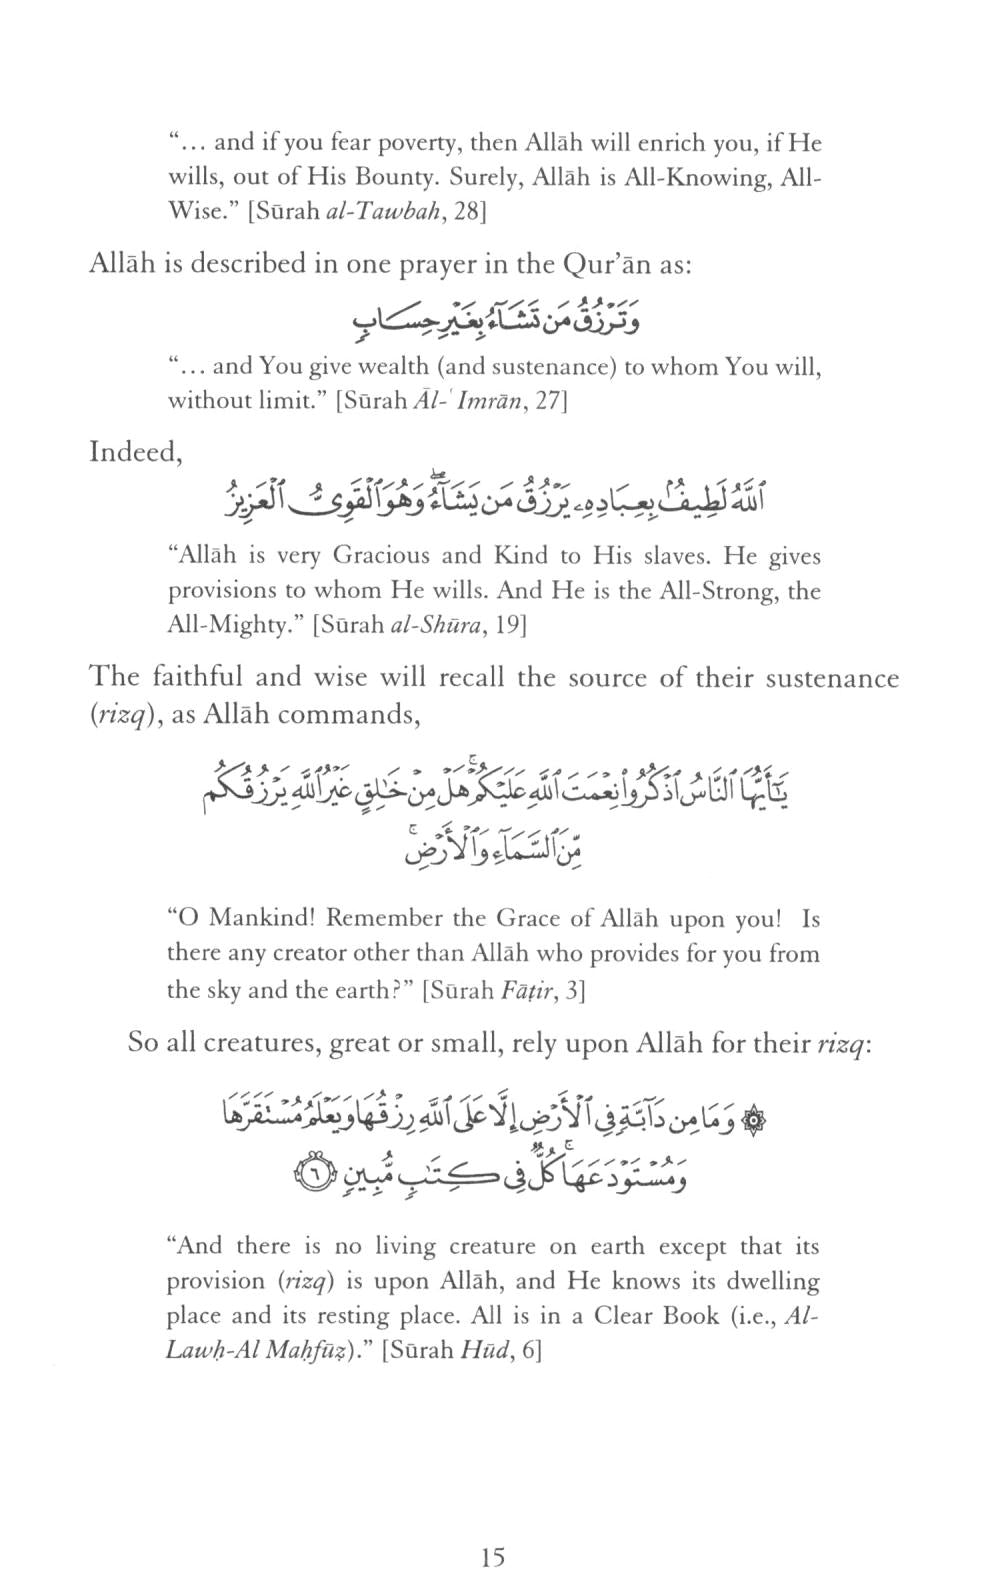 “... and if you fear poverty, then Allāh will enrich you, if He
wills, out of His Bounty. Surely, Allāh is All-Knowing, All-
Wise.” [Sūrah al-Tawbah, 28]
Allāh is described in one prayer in the Qur’ān as:
وَتَرْزُقُ مَن تَشَآءُ بِغَيْرِ حِسَابٍ
“... and You give wealth (and sustenance) to whom You will,
without limit.” [Sūrah Āl-ʿImrān, 27]
Indeed,
ٱللَّهُ لَطِيفٌۢ بِعِبَادِهِۦ يَرْزُقُ مَن يَشَآءُۖ وَهُوَ ٱلْقَوِىُّ ٱلْعَزِيزُ
“Allāh is very Gracious and Kind to His slaves. He gives
provisions to whom He wills. And He is the All-Strong, the
All-Mighty.” [Sūrah al-Shūra, 19]
The faithful and wise will recall the source of their sustenance
(rizq), as Allāh commands,
يَـٰٓأَيُّهَا ٱلنَّاسُ ٱذْكُرُوا۟ نِعْمَتَ ٱللَّهِ عَلَيْكُمْۚ هَلْ مِنْ خَـٰلِقٍ غَيْرُ ٱللَّهِ يَرْزُقُكُم
مِّنَ ٱلسَّمَآءِ وَٱلْأَرْضِۚ
“O Mankind! Remember the Grace of Allāh upon you! Is
there any creator other than Allāh who provides for you from
the sky and the earth?” [Sūrah Fāṭir, 3]
So all creatures, great or small, rely upon Allāh for their rizq:
۞ وَمَا مِن دَآبَّةٍ فِى ٱلْأَرْضِ إِلَّا عَلَى ٱللَّهِ رِزْقُهَا وَيَعْلَمُ مُسْتَقَرَّهَا
وَمُسْتَوْدَعَهَاۚ كُلٌّ فِى كِتَـٰبٍ مُّبِينٍ ٦
“And there is no living creature on earth except that its
provision (rizq) is upon Allāh, and He knows its dwelling
place and its resting place. All is in a Clear Book (i.e., Al-
Lawḥ-Al Maḥfūẓ).” [Sūrah Hūd, 6]
15